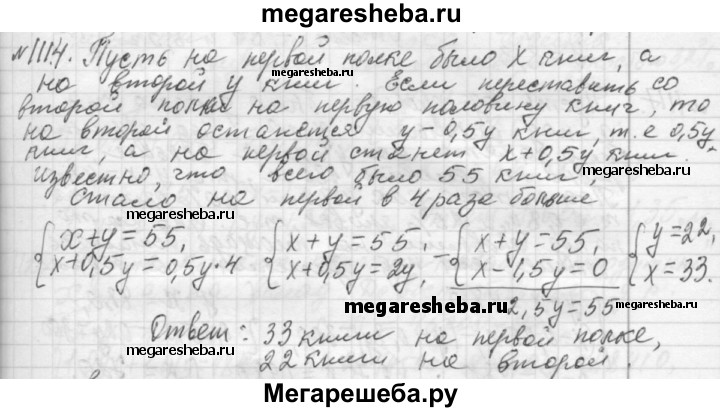 megaresheba.ru
№1114. Пусть на первой полке было x книг, а
на второй y книг. Если переставить со
megaresheba.ru
второй полки на первую половину книг, то
на второй останется y-0,5y книг, т.е 0,5y
книг, а на первой станет x+0,5y книг.
megaresheba.ru
Известно, что всего было 55 книг,
Стало на первой в 4 раза больше
megaresheba.ru
{x+y=55, {x+y=55, -{x+y=55, {y=22,
x+0,5y=0,5y·4 x+0,5y=2y, x-1,5y=0 x=33.
megaresheba.ru 2,5y=55
Ответ: 33 книги на первой полке,
megaresheba.ru megaresheba.ru
22 книги на второй.
Мегарешеба.ру